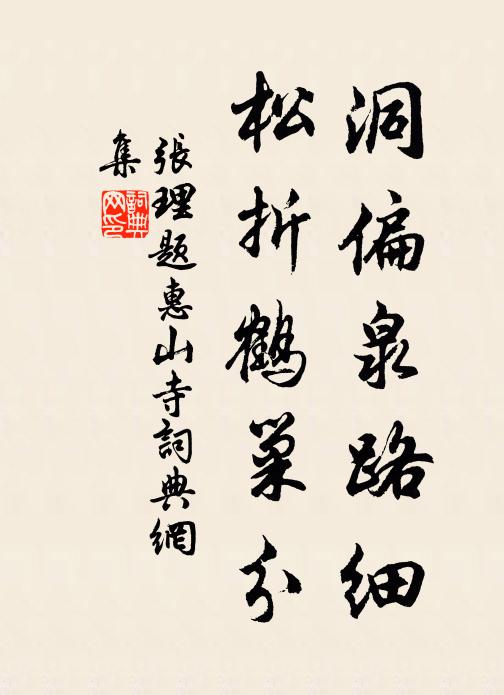 洞偏泉路細
松折鶴巢分
張理題惠山寺詞典網
集
詞典
网印